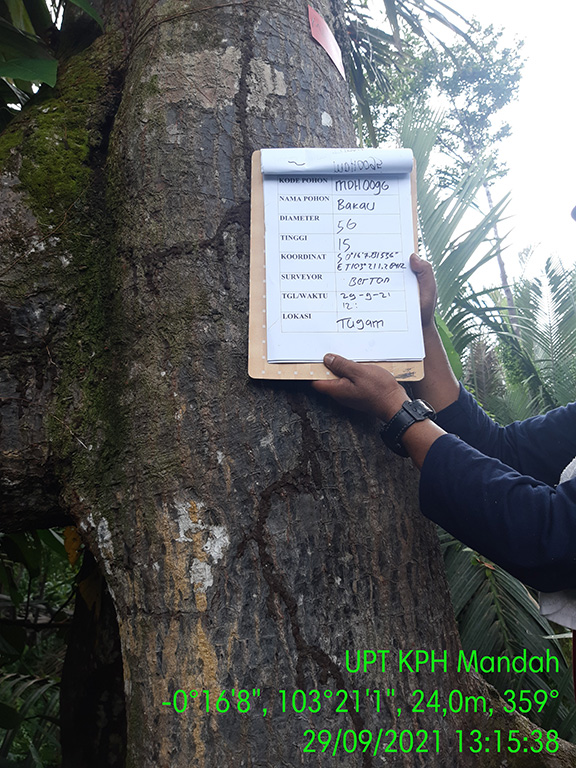 KODE POHON MDH0096
NAMA POHON Bakau
DIAMETER 56
TINGGI 15
KOORDINAT
SURVEYOR Berton
TGL/WAKTU 29-9-21
12:
LOKASI Tugam
UPT KPH Mandah
-0°16'8", 103°21'1", 24,0m, 359°
29/09/2021 13:15:38